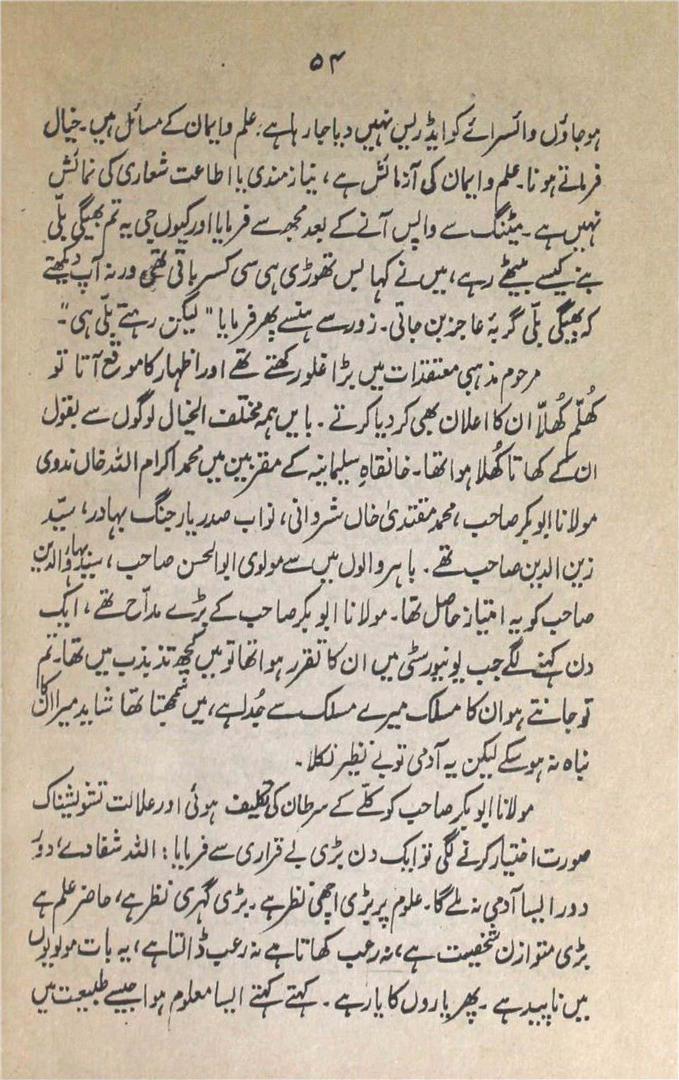 ۵۴
ہو جاؤں وائسرائے کو ایڈریس نہیں دیا جا رہا ہے، علم و ایمان کے مسائل ہیں۔ خیال
فرماتے ہو نا۔ علم و ایمان کی آزمائش ہے، نیازمندی یا اطاعت شعاری کی نمائش
نہیں ہے۔ میٹنگ سے واپس آنے کے بعد مجھ سے فرمایا اور کیوں جی یہ تم بھیگی بلّی
بنے کیسے بیٹھے رہے، میں نے کہا بس تھوڑی ہی سی کسر باقی تھی ورنہ آپ دیکھتے
کہ بھیگی بلّی گربۂ عاجز بن جاتی۔ زور سے ہنسے پھر فرمایا "لیکن رہتے بلّی ہی"۔
مرحوم مذہبی معتقدات میں بڑا غلو رکھتے تھے اور اظہار کا موقع آتا تو
کھُلّم کھُلّا ان کا اعلان بھی کر دیا کرتے۔ بایں ہمہ مختلف الخیال لوگوں سے بقول
ان کے کھاتا کھُلا ہوا تھا۔ خانقاہِ سلیمانیہ کے مقربین میں محمد اکرام اللہ خاں ندوی
مولانا ابو بکر صاحب، محمد مقتدیٰ خاں شروانی، نواب صدر یار جنگ بہادر، سیّد
زین الدین صاحب تھے۔ باہر والوں میں سے مولوی ابو الحسن صاحب، سیّد بہاؤالدین
صاحب کو یہ امتیاز حاصل تھا۔ مولانا ابو بکر صاحب کے بڑے مدّاح تھے، ایک
دن کہنے لگے جب یونیورسٹی میں ان کا تقرر ہوا تھا تو میں کچھ تذبذب میں تھا۔ تم
تو جانتے ہو ان کا مسلک میرے مسلک سے جُدا ہے، میں سمجھتا تھا شاید میرا ان کا
نباہ نہ ہو سکے لیکن یہ آدمی تو بے نظیر نکلا۔
مولانا ابو بکر صاحب کو کلّے کے سرطان کی تکلیف ہوئی اور علالت تشویشناک
صورت اختیار کرنے لگی تو ایک دن بڑی بے قراری سے فرمایا: اللہ شفا دے، دور
دور ایسا آدمی نہ ملے گا۔ علوم پر بڑی اچھی نظر ہے۔ بڑی گہری نظر ہے، حاضر علم ہے
بڑی متوازن شخصیت ہے، نہ رعب کھاتا ہے نہ رعب ڈالتا ہے، یہ بات مولویوں
میں ناپید ہے۔ پھر یاروں کا یار ہے۔ کہتے کہتے ایسا معلوم ہوا جیسے طبیعت میں